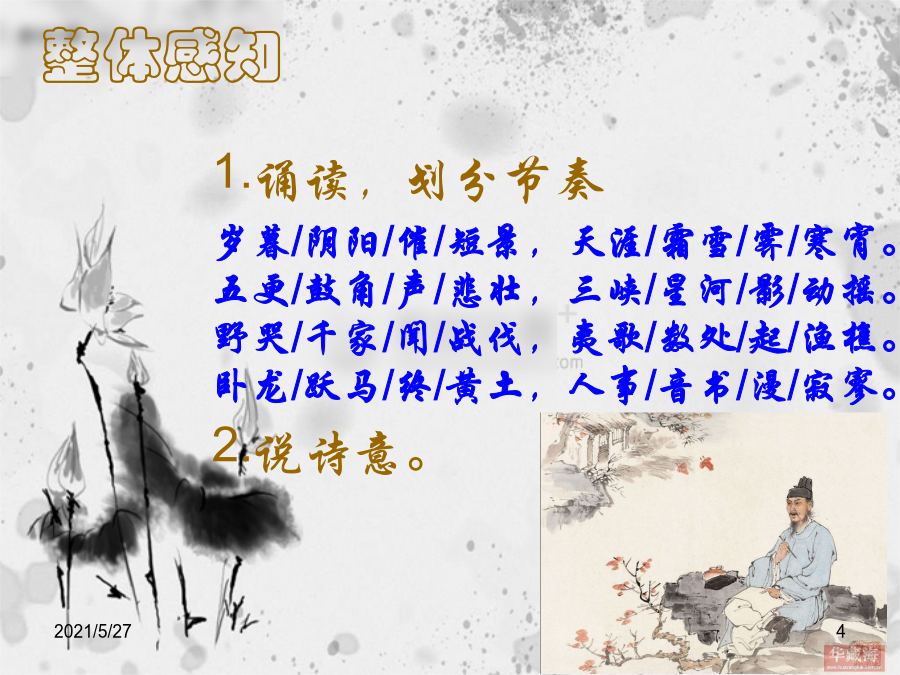 整体感知
1.诵读，划分节奏
岁暮/阴阳/催/短景，天涯/霜雪/霁/寒宵。
五更/鼓角/声/悲壮，三峡/星河/影/动摇。
野哭/千家/闻/战伐，夷歌/数处/起/渔樵。
卧龙/跃马/终/黄土，人事/音书/漫/寂寥。
2.说诗意。
2021/5/27
4
华藏海